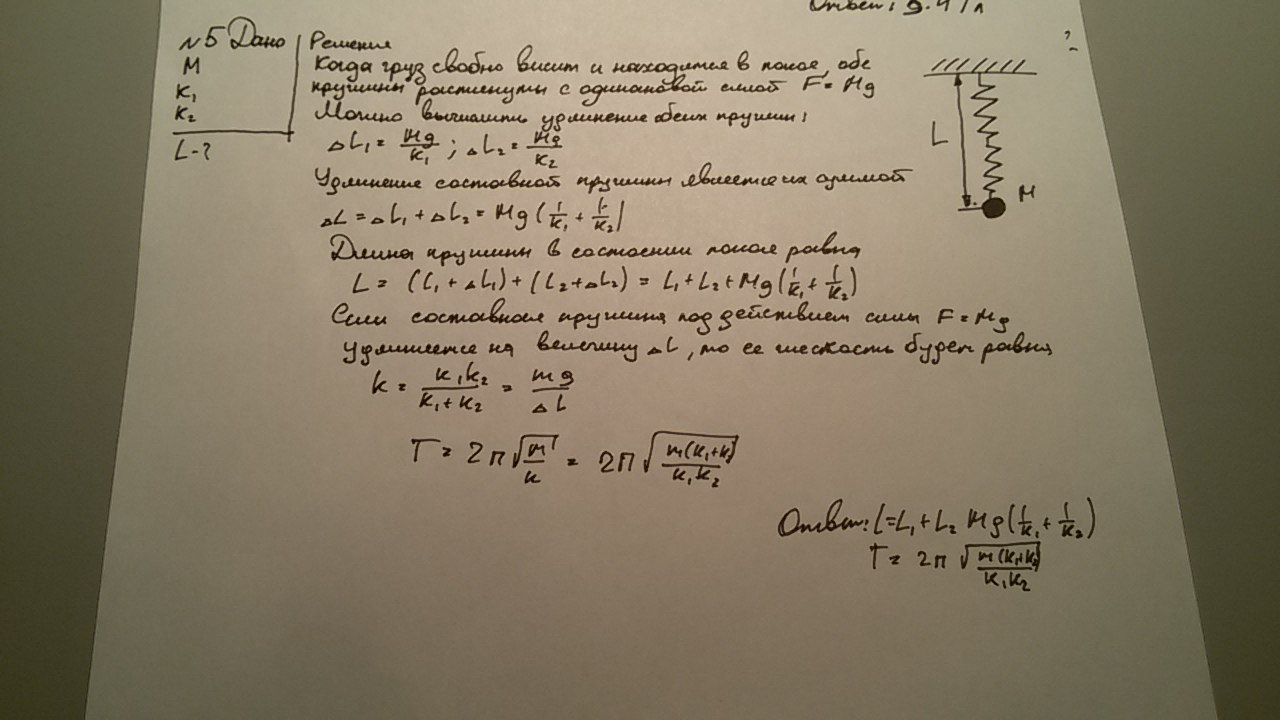 Ответ: 9.4 / л
№5 Дано
M
K₁
K₂
L-?
Решение
Когда груз свободно висит и находится в покое, обе
пружины растянуты с одинаковой силой F = Mg
Можно вычислить удлинение обеих пружин:
ΔL₁ = Mg/K₁ ; ΔL₂ = Mg/K₂
Удлинение составной пружины является их суммой
ΔL = ΔL₁ + ΔL₂ = Mg(1/K₁ + 1/K₂)
Длина пружины в состоянии покоя равна
L = (L₁ + ΔL₁) + (L₂ + ΔL₂) = L₁ + L₂ + Mg(1/K₁ + 1/K₂)
Если составная пружина под действием силы F = Mg
удлиняется на величину ΔL, то ее жескость будет равна
k = K₁K₂/(K₁ + K₂) = mg/ΔL
T = 2π√(m/k) = 2π√(m(K₁+K₂)/K₁K₂)
Ответ: L = L₁ + L₂ Mg(1/K₁ + 1/K₂)
T = 2π√(m(K₁+K₂)/K₁K₂)
L
M
?